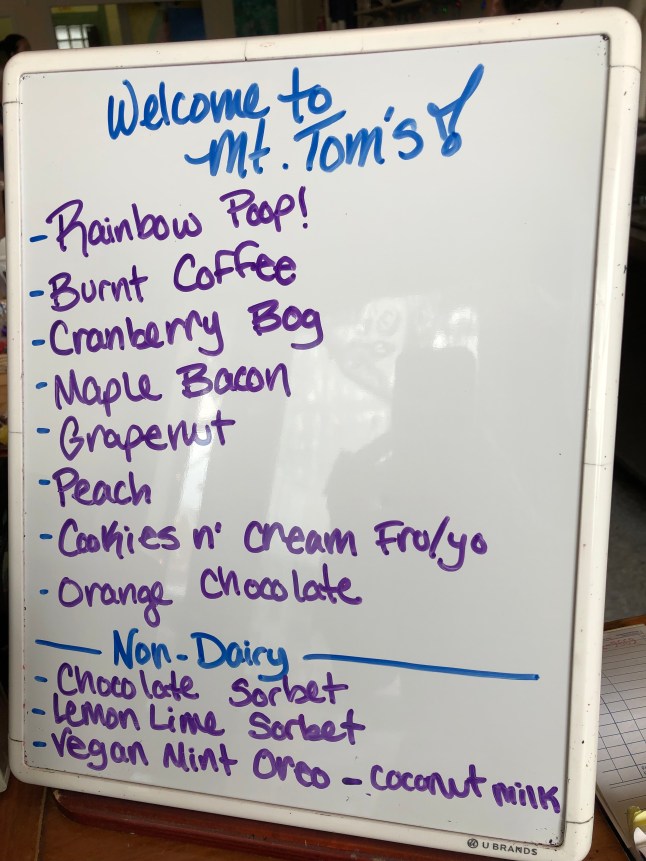 Welcome to
Mt. Tom's!
- Rainbow Poop!
- Burnt Coffee
- Cranberry Bog
- Maple Bacon
- Grapenut
- Peach
- Cookies n' Cream Fro/yo
- Orange Chocolate
Non-Dairy
- Chocolate Sorbet
- Lemon Lime Sorbet
- Vegan Mint Oreo - coconut milk
U BRANDS